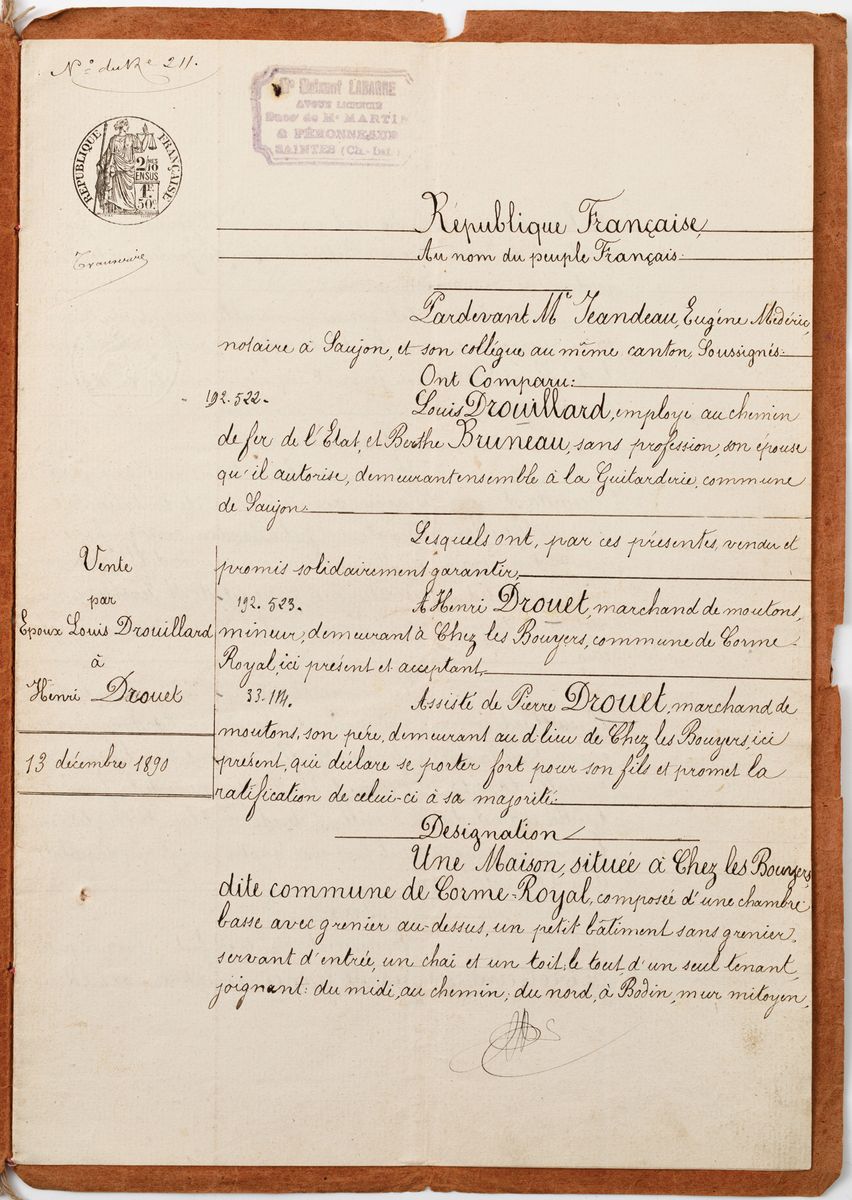 N° du Re 211.
Me Clément LABARRE
AVOUÉ LICENCIÉ
Succr de Me MARTIN
& PÉRONNEAUD
SAINTES (Ch.-Inf.)
RÉPUBLIQUE FRANÇAISE
2/10
EN SUS
1F
50c
République Française,
Au nom du peuple Français.
Transcrire
Pardevant Me Jeandeau, Eugène Médéric,
notaire à Saujon, et son collégue au même canton, Soussignés.
Ont Comparu:
192.522.
Louis Drouillard, employé au chemin
de fer de l'Etat, et Berthe Bruneau, sans profession, son épouse
qu'il autorise, demeurant ensemble à la Guitarderie, commune
de Saujon.
Lesquels ont, par ces présentes, vendu et
promis solidairement garantir,
192.523.
A Henri Drouet, marchand de moutons,
mineur, demeurant à Chez les Bouyers, commune de Corme-
Royal, ici présent et acceptant,
33.114.
Assisté de Pierre Drouet, marchand de
moutons, son père, demeurant au d. lieu de Chez les Bouyers, ici
présent, qui déclare se porter fort pour son fils et promet la
ratification de celui-ci à sa majorité.
Vente
par
Epoux Louis Drouillard
à
Henri Drouet
13 décembre 1890
Désignation
Une Maison, située à Chez les Bouyers,
dite commune de Corme-Royal, composée d'une chambre
basse avec grenier au-dessus, un petit bâtiment sans grenier,
servant d'entrée, un chai et un toit; le tout d'un seul tenant,
joignant: du midi, au chemin; du nord, à Bodin, mur mitoyen,